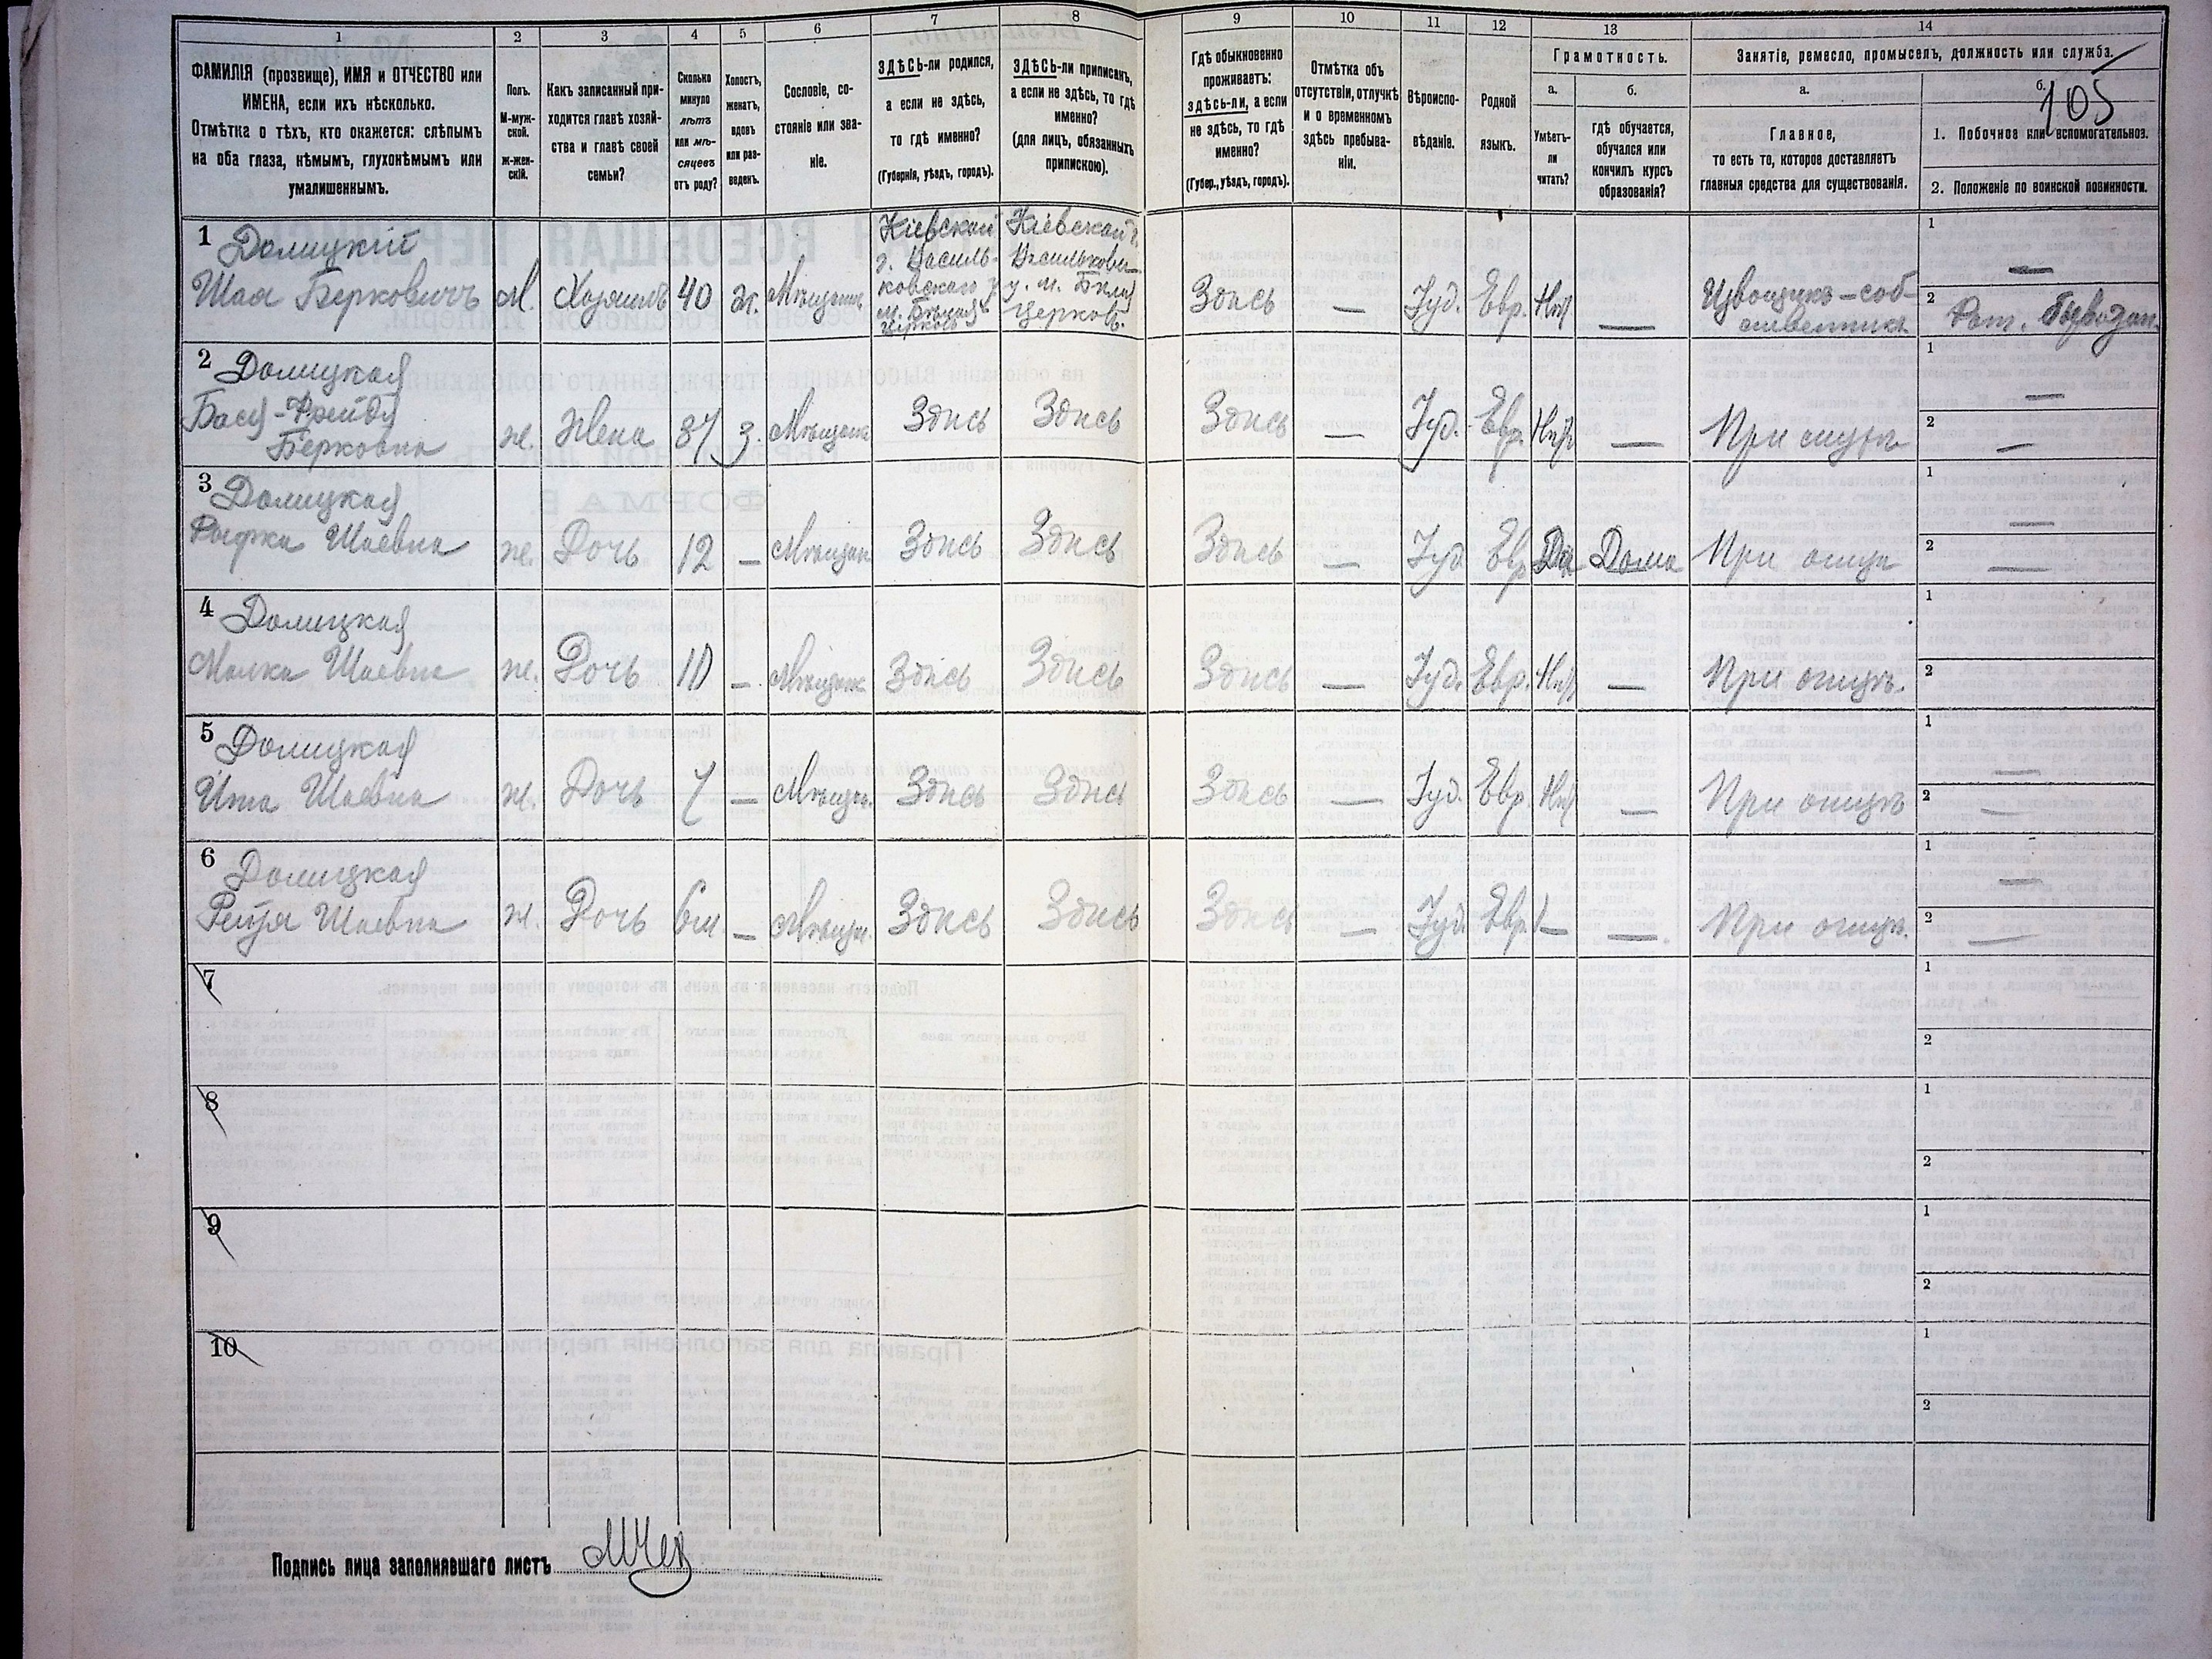 1 2 3 4 5 6 7 8 9 10 11 12 13 14
ФАМИЛІЯ (прозвище), ИМЯ и ОТЧЕСТВО или
ИМЕНА, если ихъ нѣсколько.
Отмѣтка о тѣхъ, кто окажется: слѣпымъ
на оба глаза, нѣмымъ, глухонѣмымъ или
умалишеннымъ.
Полъ.
М-муж-
ской.
ж-жен-
скій.
Какъ записанный при-
ходится главѣ хозяй-
ства и главѣ своей
семьи?
Сколько
минуло
лѣтъ
или мѣ-
сяцевъ
отъ роду?
Холостъ,
женатъ,
вдовъ
или раз-
веденъ.
Сословіе, со-
стояніе или зва-
ніе.
ЗДѢСЬ-ли родился,
а если не здѣсь,
то гдѣ именно?
(Губернія, уѣздъ, городъ).
ЗДѢСЬ-ли приписанъ,
а если не здѣсь, то гдѣ
именно?
(для лицъ, обязанныхъ
припискою).
Гдѣ обыкновенно
проживаетъ:
здѣсь-ли, а если
не здѣсь, то гдѣ
именно?
(Губер., уѣздъ, городъ).
Отмѣтка объ
отсутствіи, отлучкѣ
и о временномъ
здѣсь пребыва-
ніи.
Вѣроиспо-
вѣданіе.
Родной
языкъ.
Грамотность.
а.
Умѣетъ-
ли
читать?
б.
гдѣ обучается,
обучался или
кончилъ курсъ
образованія?
Занятіе, ремесло, промыселъ, должность или служба.
а.
Главное,
то есть то, которое доставляетъ
главныя средства для существованія.
б.
105
1. Побочное или вспомогательное.
2. Положеніе по воинской повинности.
1 Долицкій
Шая Берковичъ М. Хозяинъ 40 ж.
Кіевской
г. Василь-
ковскаго у
м. Бѣлая
Церковь
Кіевской г.
Васильков
у. м. Бѣлая
Церковь.
Здѣсь — Іуд. Евр. —
Извощикъ-соб-
ственникъ
1 —
2
2 Долицкая
Бася-Фрейда
Берковна ж. Жена 37 з. Здѣсь Здѣсь Здѣсь — Іуд. Евр. — При мужѣ
1 —
2 —
3 Долицкая
Рыфка Шаевна ж. Дочь 12 — Здѣсь Здѣсь Здѣсь — Іуд Евр Да Дома При отцѣ
1 —
2 —
4 Долицкая
Малка Шаевна ж. Дочь 10 — Здѣсь Здѣсь Здѣсь — Іуд. Евр. — При отцѣ.
1
2
5 Долицкая
Ита Шаевна ж. Дочь 7 — Здѣсь Здѣсь Здѣсь — Іуд. Евр. — При отцѣ
1 —
2 —
6 Долицкая
Шаевна ж. Дочь 6 м. — Здѣсь Здѣсь Здѣсь — Іуд. Евр. — — При отцѣ.
1 —
2 —
7
1
2
8
1
2
9
1
2
10
1
2
Подпись лица заполнявшаго листъ